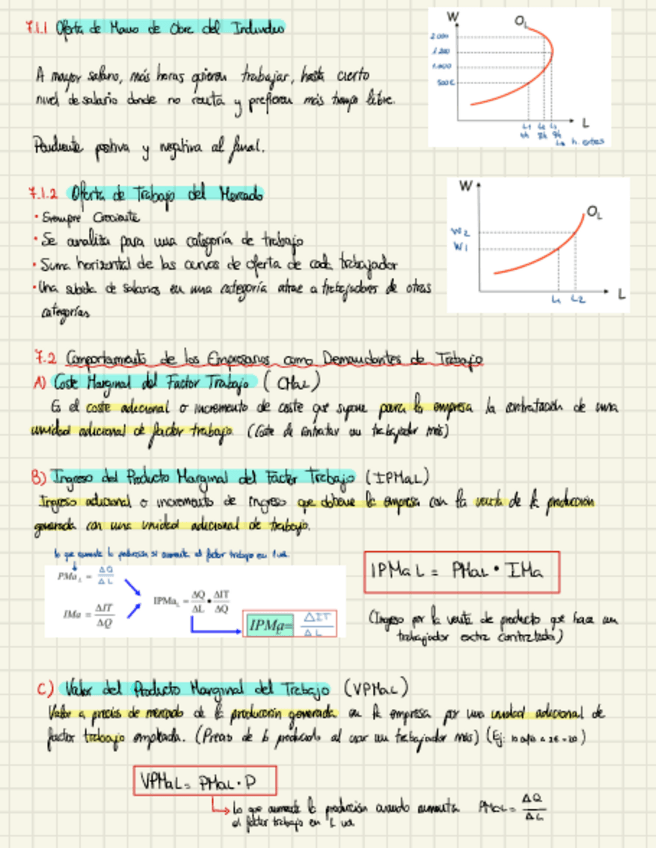 7.1.1 Oferta de Mano de Obra del Individuo
A mayor salario, más horas quieren trabajar, hasta cierto
nivel de salario donde no renta y prefieren más tiempo libre.
Pendiente positiva y negativa al final.
W
OL
2.000
1.200
1.000
500€
L
L1 L2 L3
7.1.2 Oferta de Trabajo del Mercado
• Siempre Creciente
• Se analiza para una categoría de trabajo
• Suma horizontal de las curvas de oferta de cada trabajador
• Una subida de salarios en una categoría atrae a trabajadores de otras
categorías
W
OL
W2
W1
L1 L2
L
7.2 Comportamiento de los Empresarios como Demandantes de Trabajo
A) Coste Marginal del Factor Trabajo (CMaL)
Es el coste adicional o incremento de coste que supone para la empresa la contratación de una
unidad adicional de factor trabajo. (Coste de contratar un trabajador más)
B) Ingreso del Producto Marginal del Factor Trabajo (IPMaL)
Ingreso adicional o incremento de ingreso que obtiene la empresa con la venta de la producción
generada con una unidad adicional de trabajo.
lo que aumenta la producción si aumenta el factor trabajo en 1 ud.
PMaL = ΔQ/ΔL
IMa = ΔIT/ΔQ
IPMaL = ΔQ/ΔL • ΔIT/ΔQ
IPMa = ΔIT/ΔL
IPMaL = PMaL • IMa
(Ingreso por la venta de producto que hace un
trabajador extra contratado)
C) Valor del Producto Marginal del Trabajo (VPMaL)
Valor a precios de mercado de la producción generada en la empresa por una unidad adicional de
factor trabajo empleada. (Precio de lo producido al usar un trabajador más) (Ej:
VPMaL = PMaL • P
Lo que aumenta la producción cuando aumenta PMaL = ΔQ/ΔL
el factor trabajo en 1 ud.